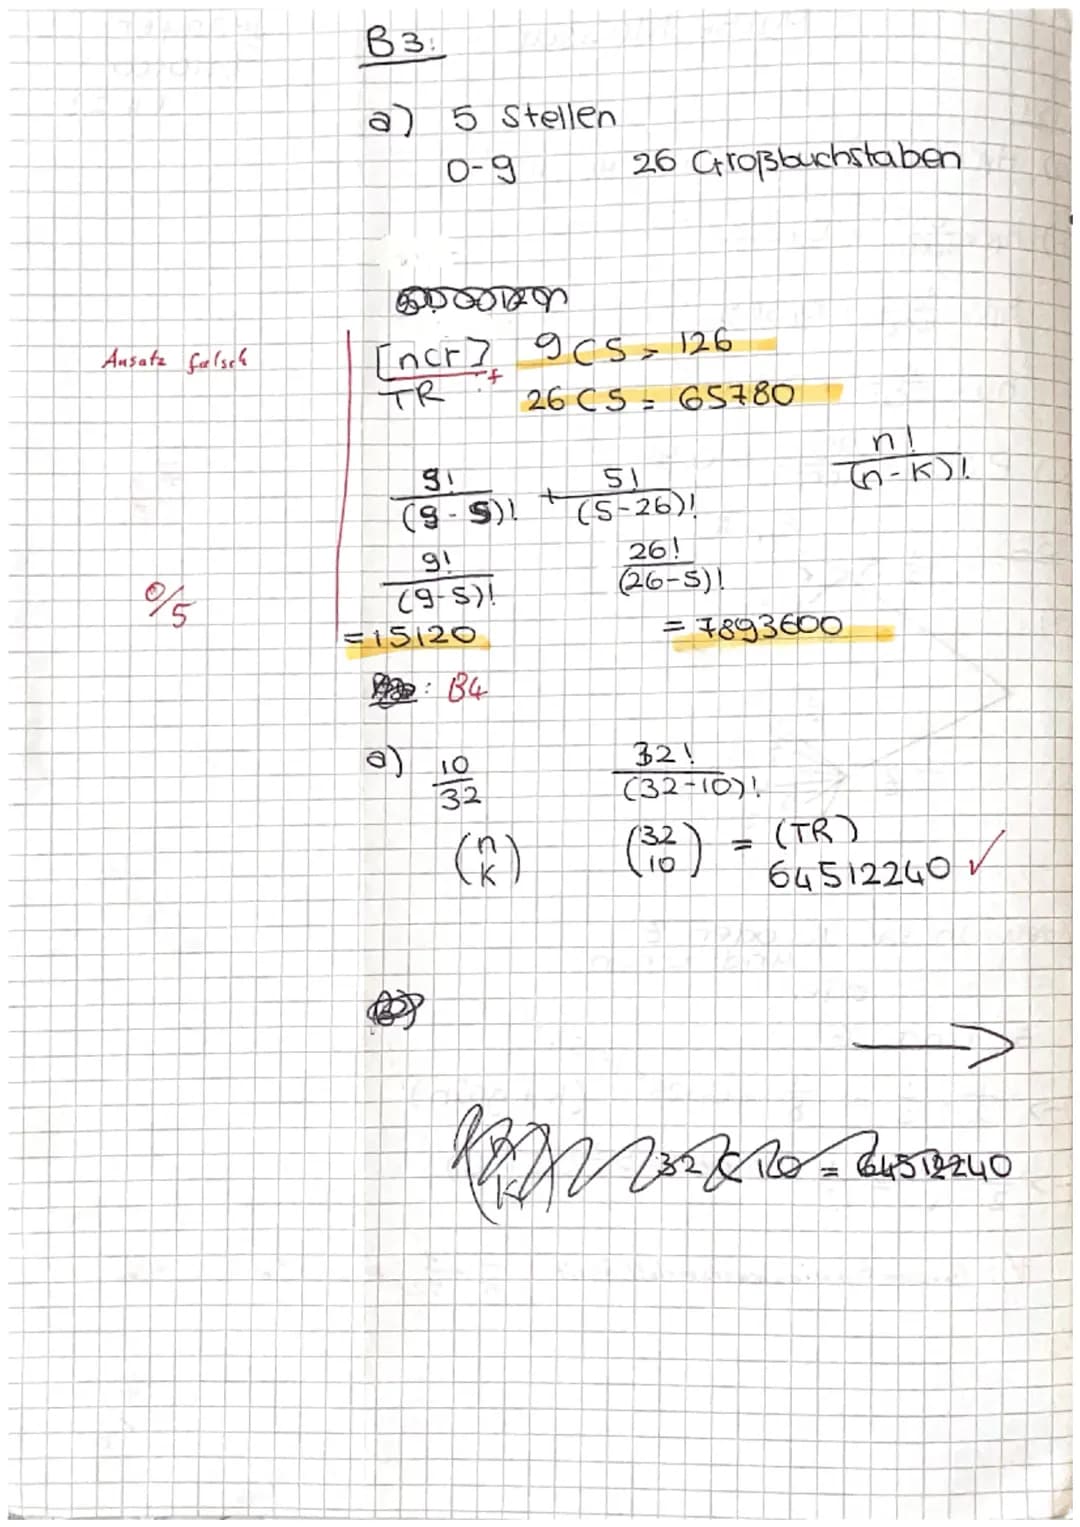 B3:
a) 5 Stellen
0-9 26 Großbuchstaben
Ansatz falsch
[ncr] f 9C5 = 126
TR 26C5 = 65780
n!/(n-k)!
9!/(9-5)! + 5!/(5-26)!
9!/(9-5)! 26!/(26-5)!
0/5
=15120 = 7893600
: B4
a) 10/32 32!/(32-10)!
(n k) (32 10) = (TR)
64512240 ✓
→
32C10 = 64512240